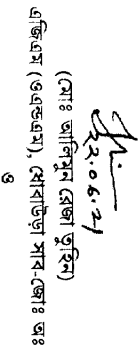 ২২.০৬.২১
(মোঃ আলিমুল রেজা তুহিন)
এজিএম (ওএন্ডএম), ধোবাউড়া সাব-জোঃ অঃ
ও